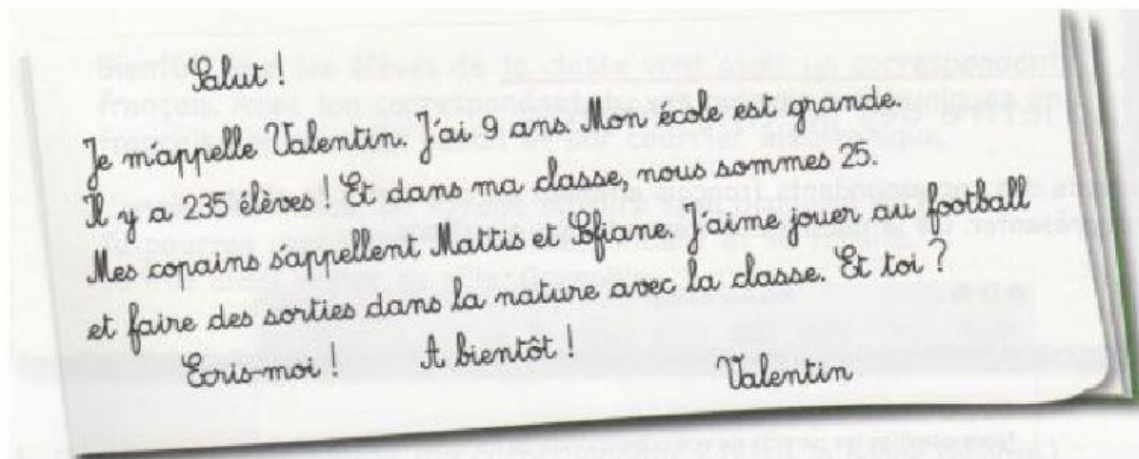 Salut !
Je m'appelle Valentin. J'ai 9 ans. Mon école est grande.
Il y a 235 élèves ! Et dans ma classe, nous sommes 25.
Mes copains s'appellent Mattis et Sofiane. J'aime jouer au football
et faire des sorties dans la nature avec la classe. Et toi ?
Ecris-moi ! A bientôt !
Valentin